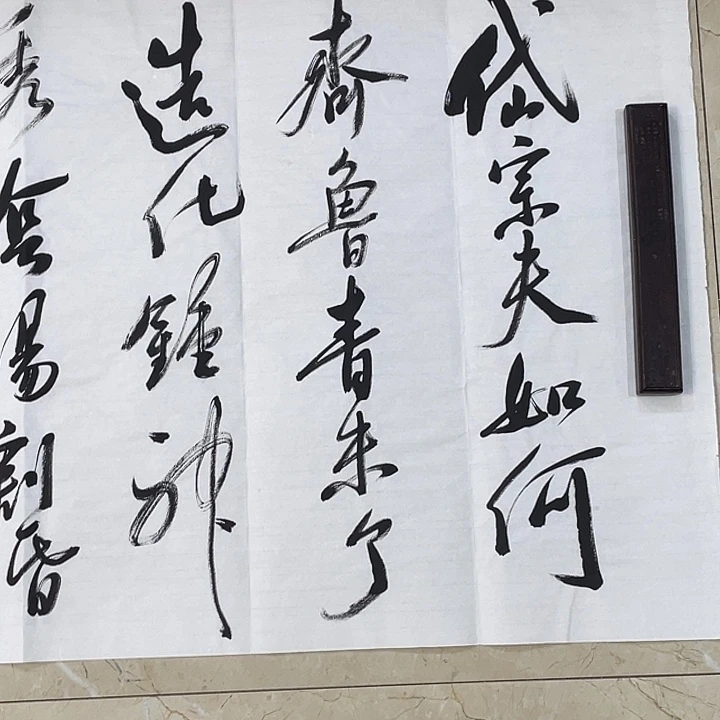 岱宗夫如何
齊魯青未了
造化鍾神
秀侌昜割昏